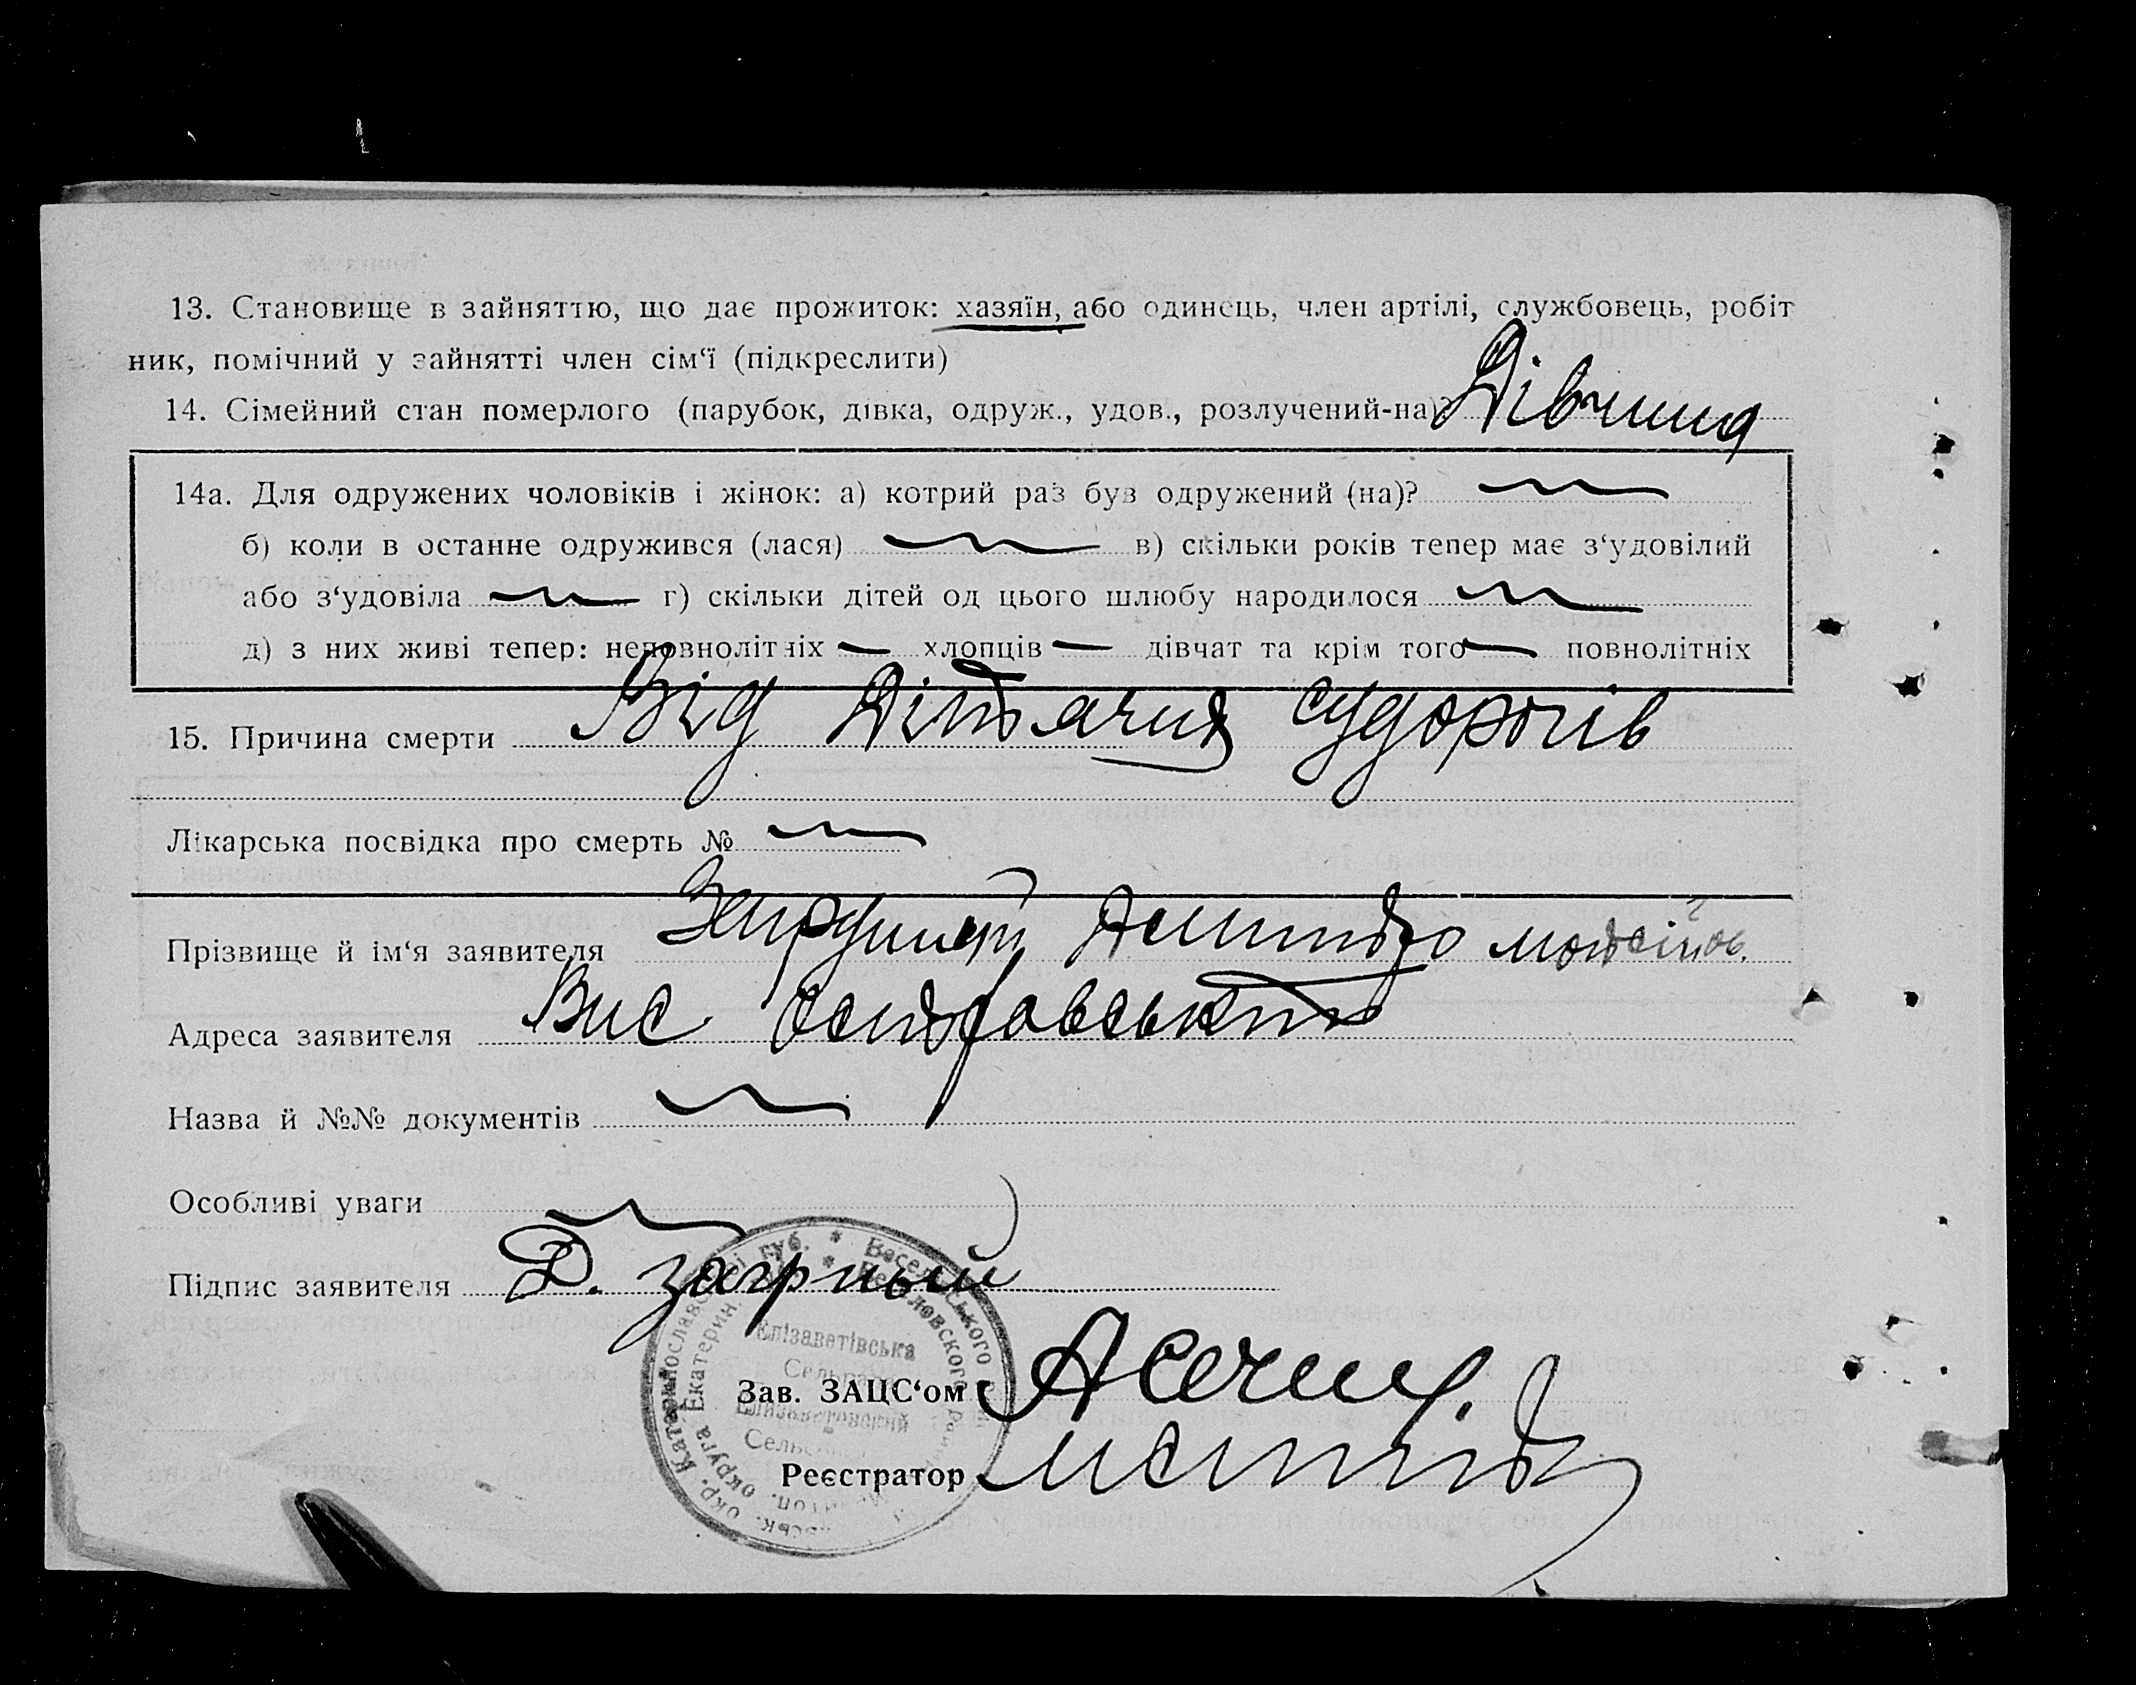 13. Становище в зайняттю, що дає прожиток: хазяїн, або одинець, член артілі, службовець, робіт
ник, помічний у зайнятті член сім‘ї (підкреслити)
14. Сімейний стан померлого (парубок, дівка, одруж., удов., розлучений-на)? Дівчина
14а. Для одружених чоловіків і жінок: а) котрий раз був одружений (на)?
б) коли в останнє одружився (лася) в) скільки років тепер має з‘удовілий
або з‘удовіла г) скільки дітей од цього шлюбу народилося
д) з них живі тепер: неповнолітніх — хлопців — дівчат та крім того — повнолітніх
15. Причина смерти Від Дітячих судорогів
Лікарська посвідка про смерть №
Прізвище й ім‘я заявителя Дмитро
Адреса заявителя Вис Островський
Назва й №№ документів
Особливі уваги
Підпис заявителя Д.
Єлізаветівська
Сельрада
Зав. ЗАЦС‘ом
Елизаветовский
Реєстратор